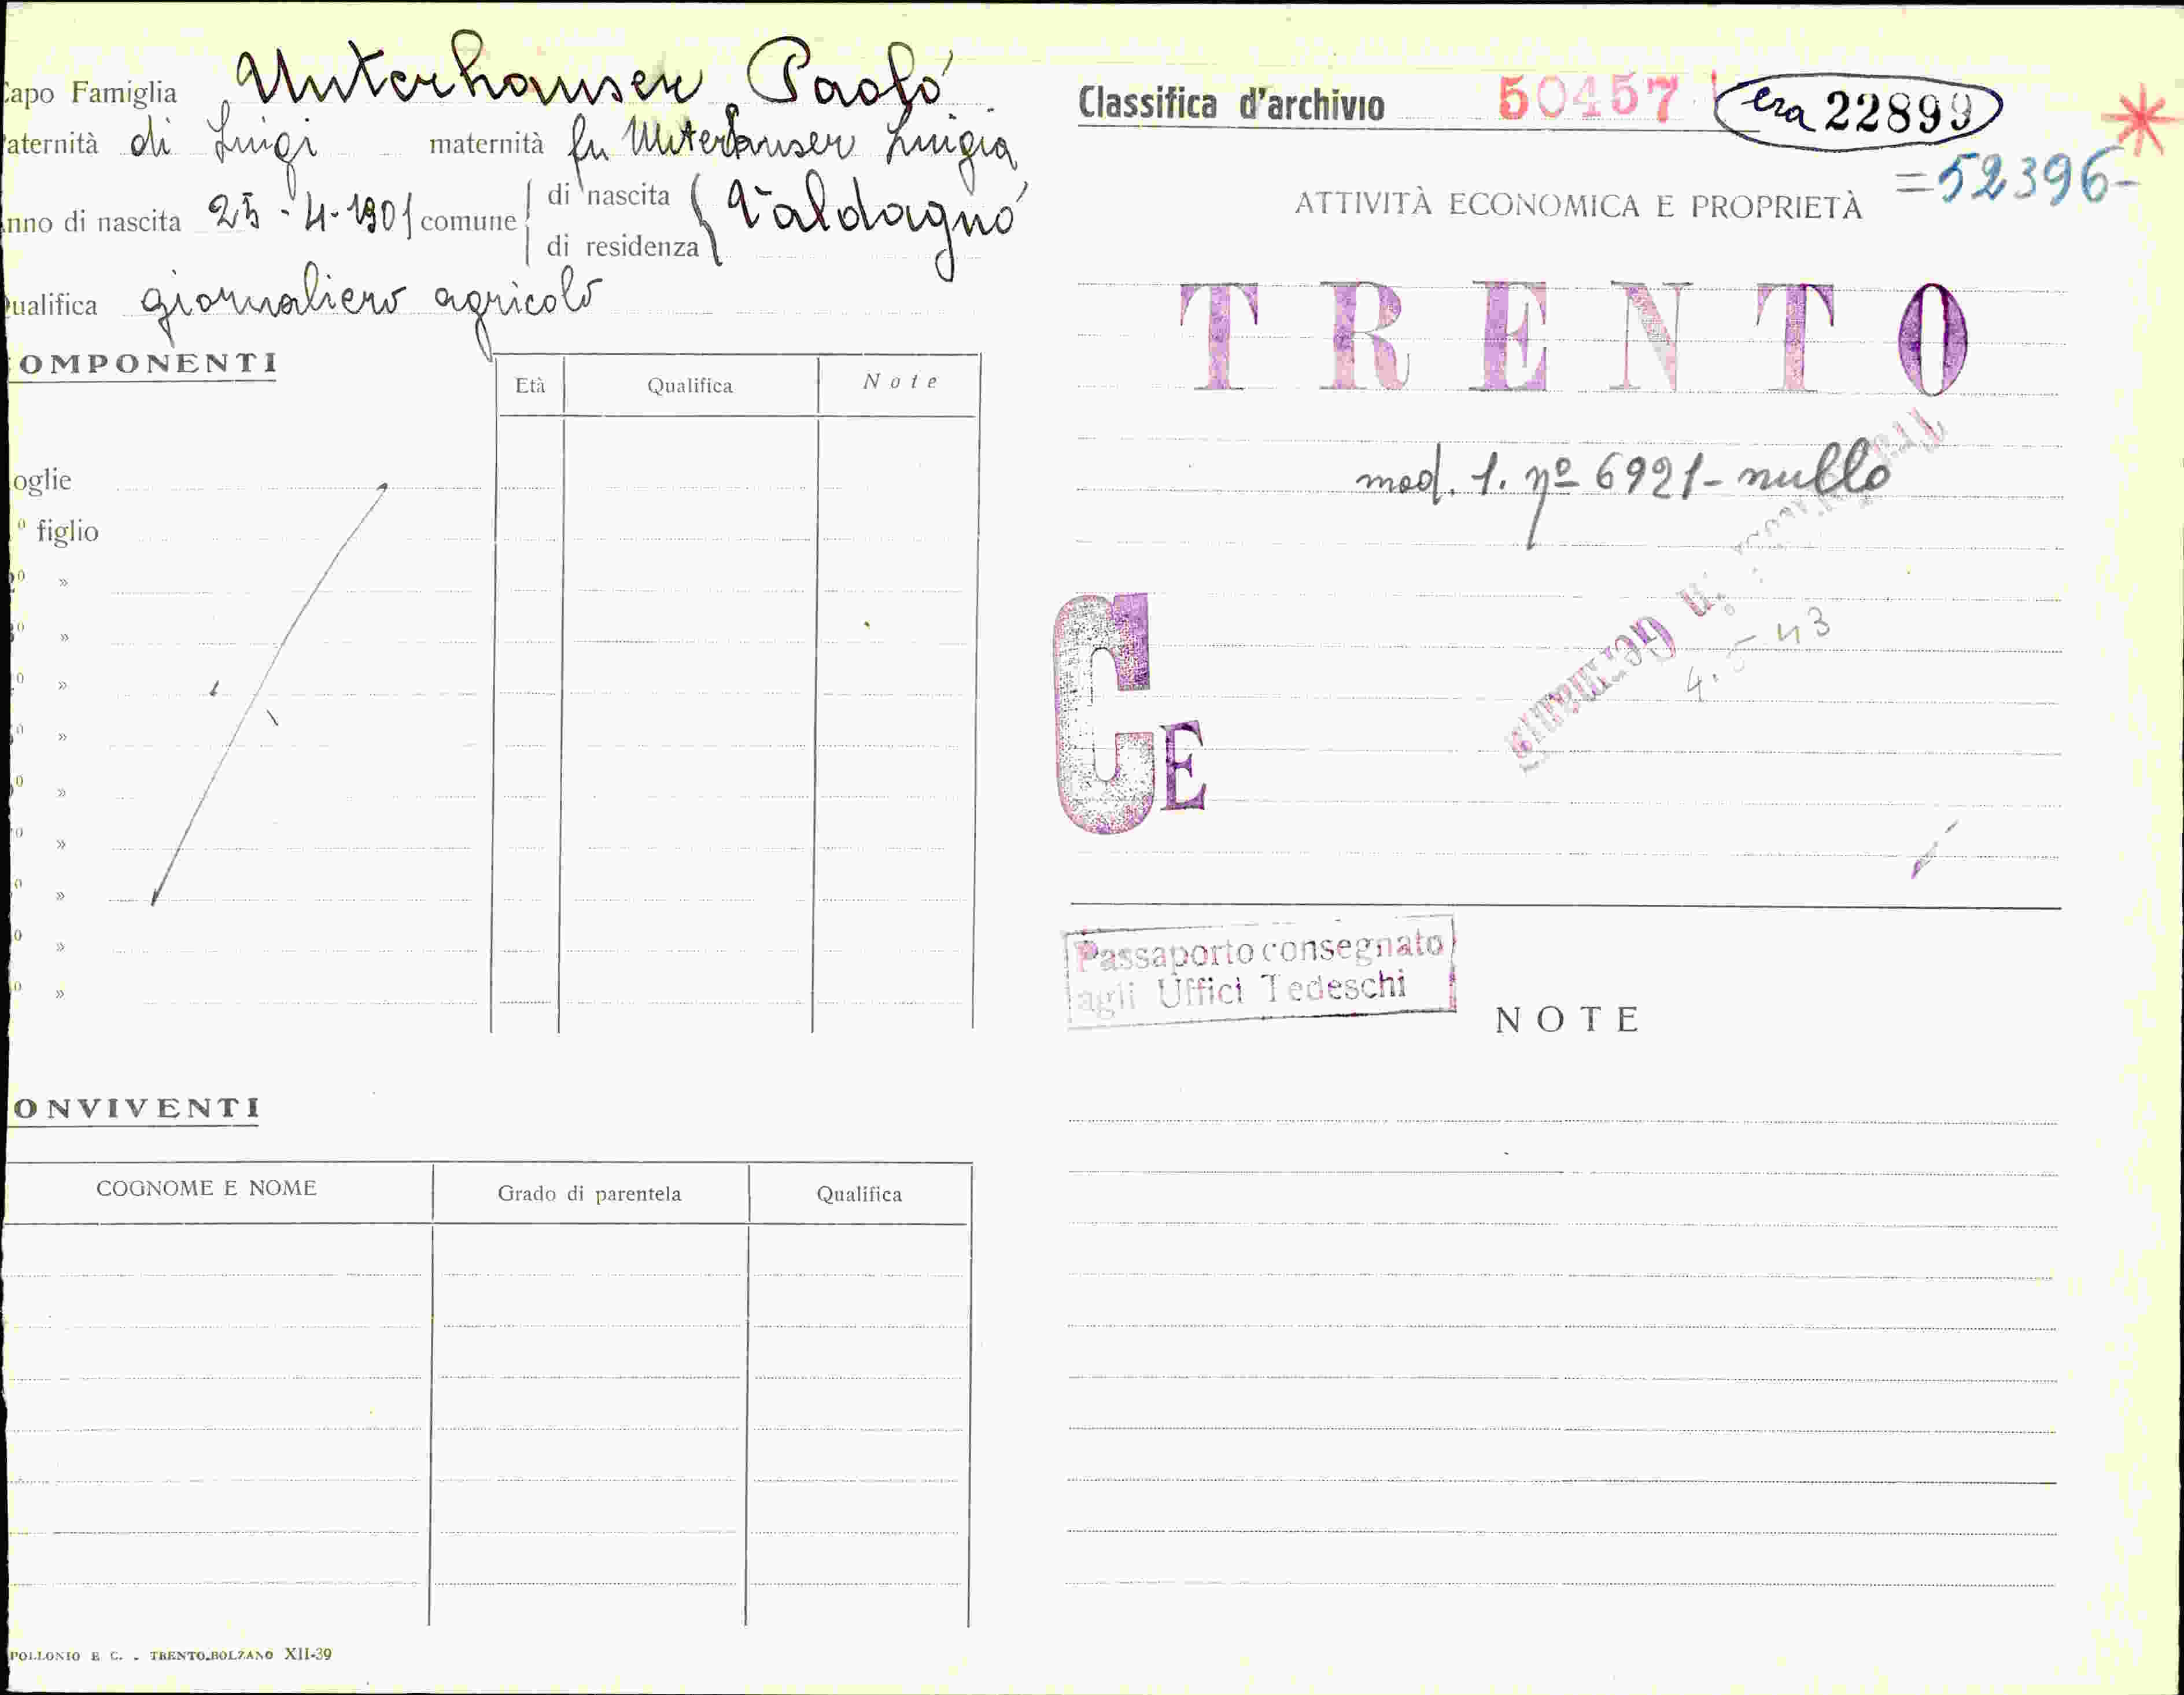 Capo Famiglia Unterhauser Paolo
aternità di Luigi maternità fu Unterhauser Luigia
nno di nascita 25-4-1901 comune di nascita Valdagno
di residenza
ualifica giornaliero agricolo
OMPONENTI
Età Qualifica Note
oglie
º figlio
º »
º »
º »
º »
º »
º »
º »
º »
º »
ONVIVENTI
COGNOME E NOME Grado di parentela Qualifica
POLLONIO E C. - TRENTO-BOLZANO XII-39
Classifica d'archivio 50457 era 22899
=52396-
ATTIVITÀ ECONOMICA E PROPRIETÀ
TRENTO
mod. 1. nº 6921- nullo
4.5-43
CE
Passaporto consegnato
agli Uffici Tedeschi
NOTE